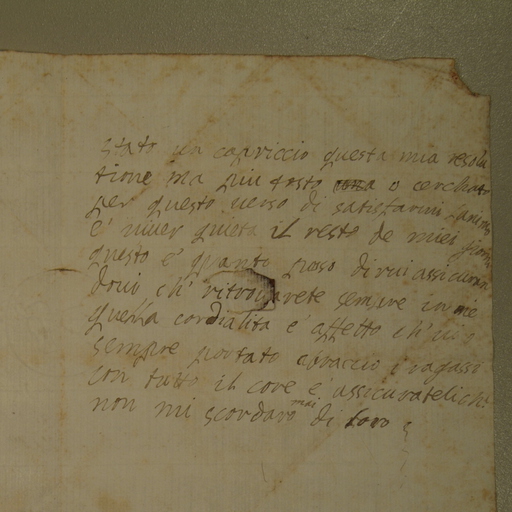 stato un capriccio questa mia resolu
tione ma piu tosto o cerchato
per questo verso di satisfarmi l'animo
e viver quieta il resto de miei giorni
questo e quanto poso dirvi assicuran
dovi ch' ritrovarete sempre in me
quella cordialita e affetto ch' vi o
sempre portato abraccio i ragassi
con tutto il core e assicurateli ch'
non mi scordaro mai di loro